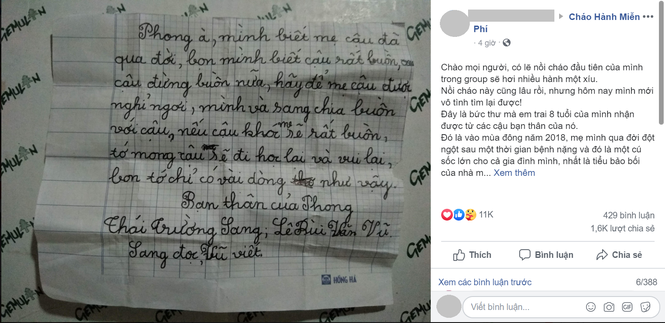 Phong à, mình biết mẹ cậu đã
qua đời, bọn mình biết cậu rất buồn,
cậu đừng buồn nữa, hãy để mẹ cậu được
nghỉ ngơi, mình và sang chia buồn
với cậu, nếu cậu khóc mẹ sẽ rất buồn,
tớ mong cậu sẽ đi học lại và vui lại,
bọn tớ chỉ có vài dòng như vậy.
Bạn thân của Phong
Thái Trường Sang, Lê Bùi Văn Vũ.
Sang đọc, Vũ viết.
HỒNG HÀ
GEMULAN
GEMULAN
GEMULAN
GEMULAN
Cháo Hành Miễn
Phí
4 giờ
Chào mọi người, có lẽ nồi cháo đầu tiên của mình
trong group sẽ hơi nhiều hành một xíu.
Nồi cháo này cũng lâu rồi, nhưng hôm nay mình mới
vô tình tìm lại được!
Đây là bức thư mà em trai 8 tuổi của mình nhận
được từ các cậu bạn thân của nó.
Đó là vào mùa đông năm 2018, mẹ mình qua đời đột
ngột sau một thời gian bệnh nặng và đó là một cú
sốc lớn cho cả gia đình mình, nhất là tiểu bảo bối
của nhà m... Xem thêm
11K
429 bình luận
1,6K lượt chia sẻ
Thích
Bình luận
Chia sẻ
Xem các bình luận trước
6/388
Viết bình luận...